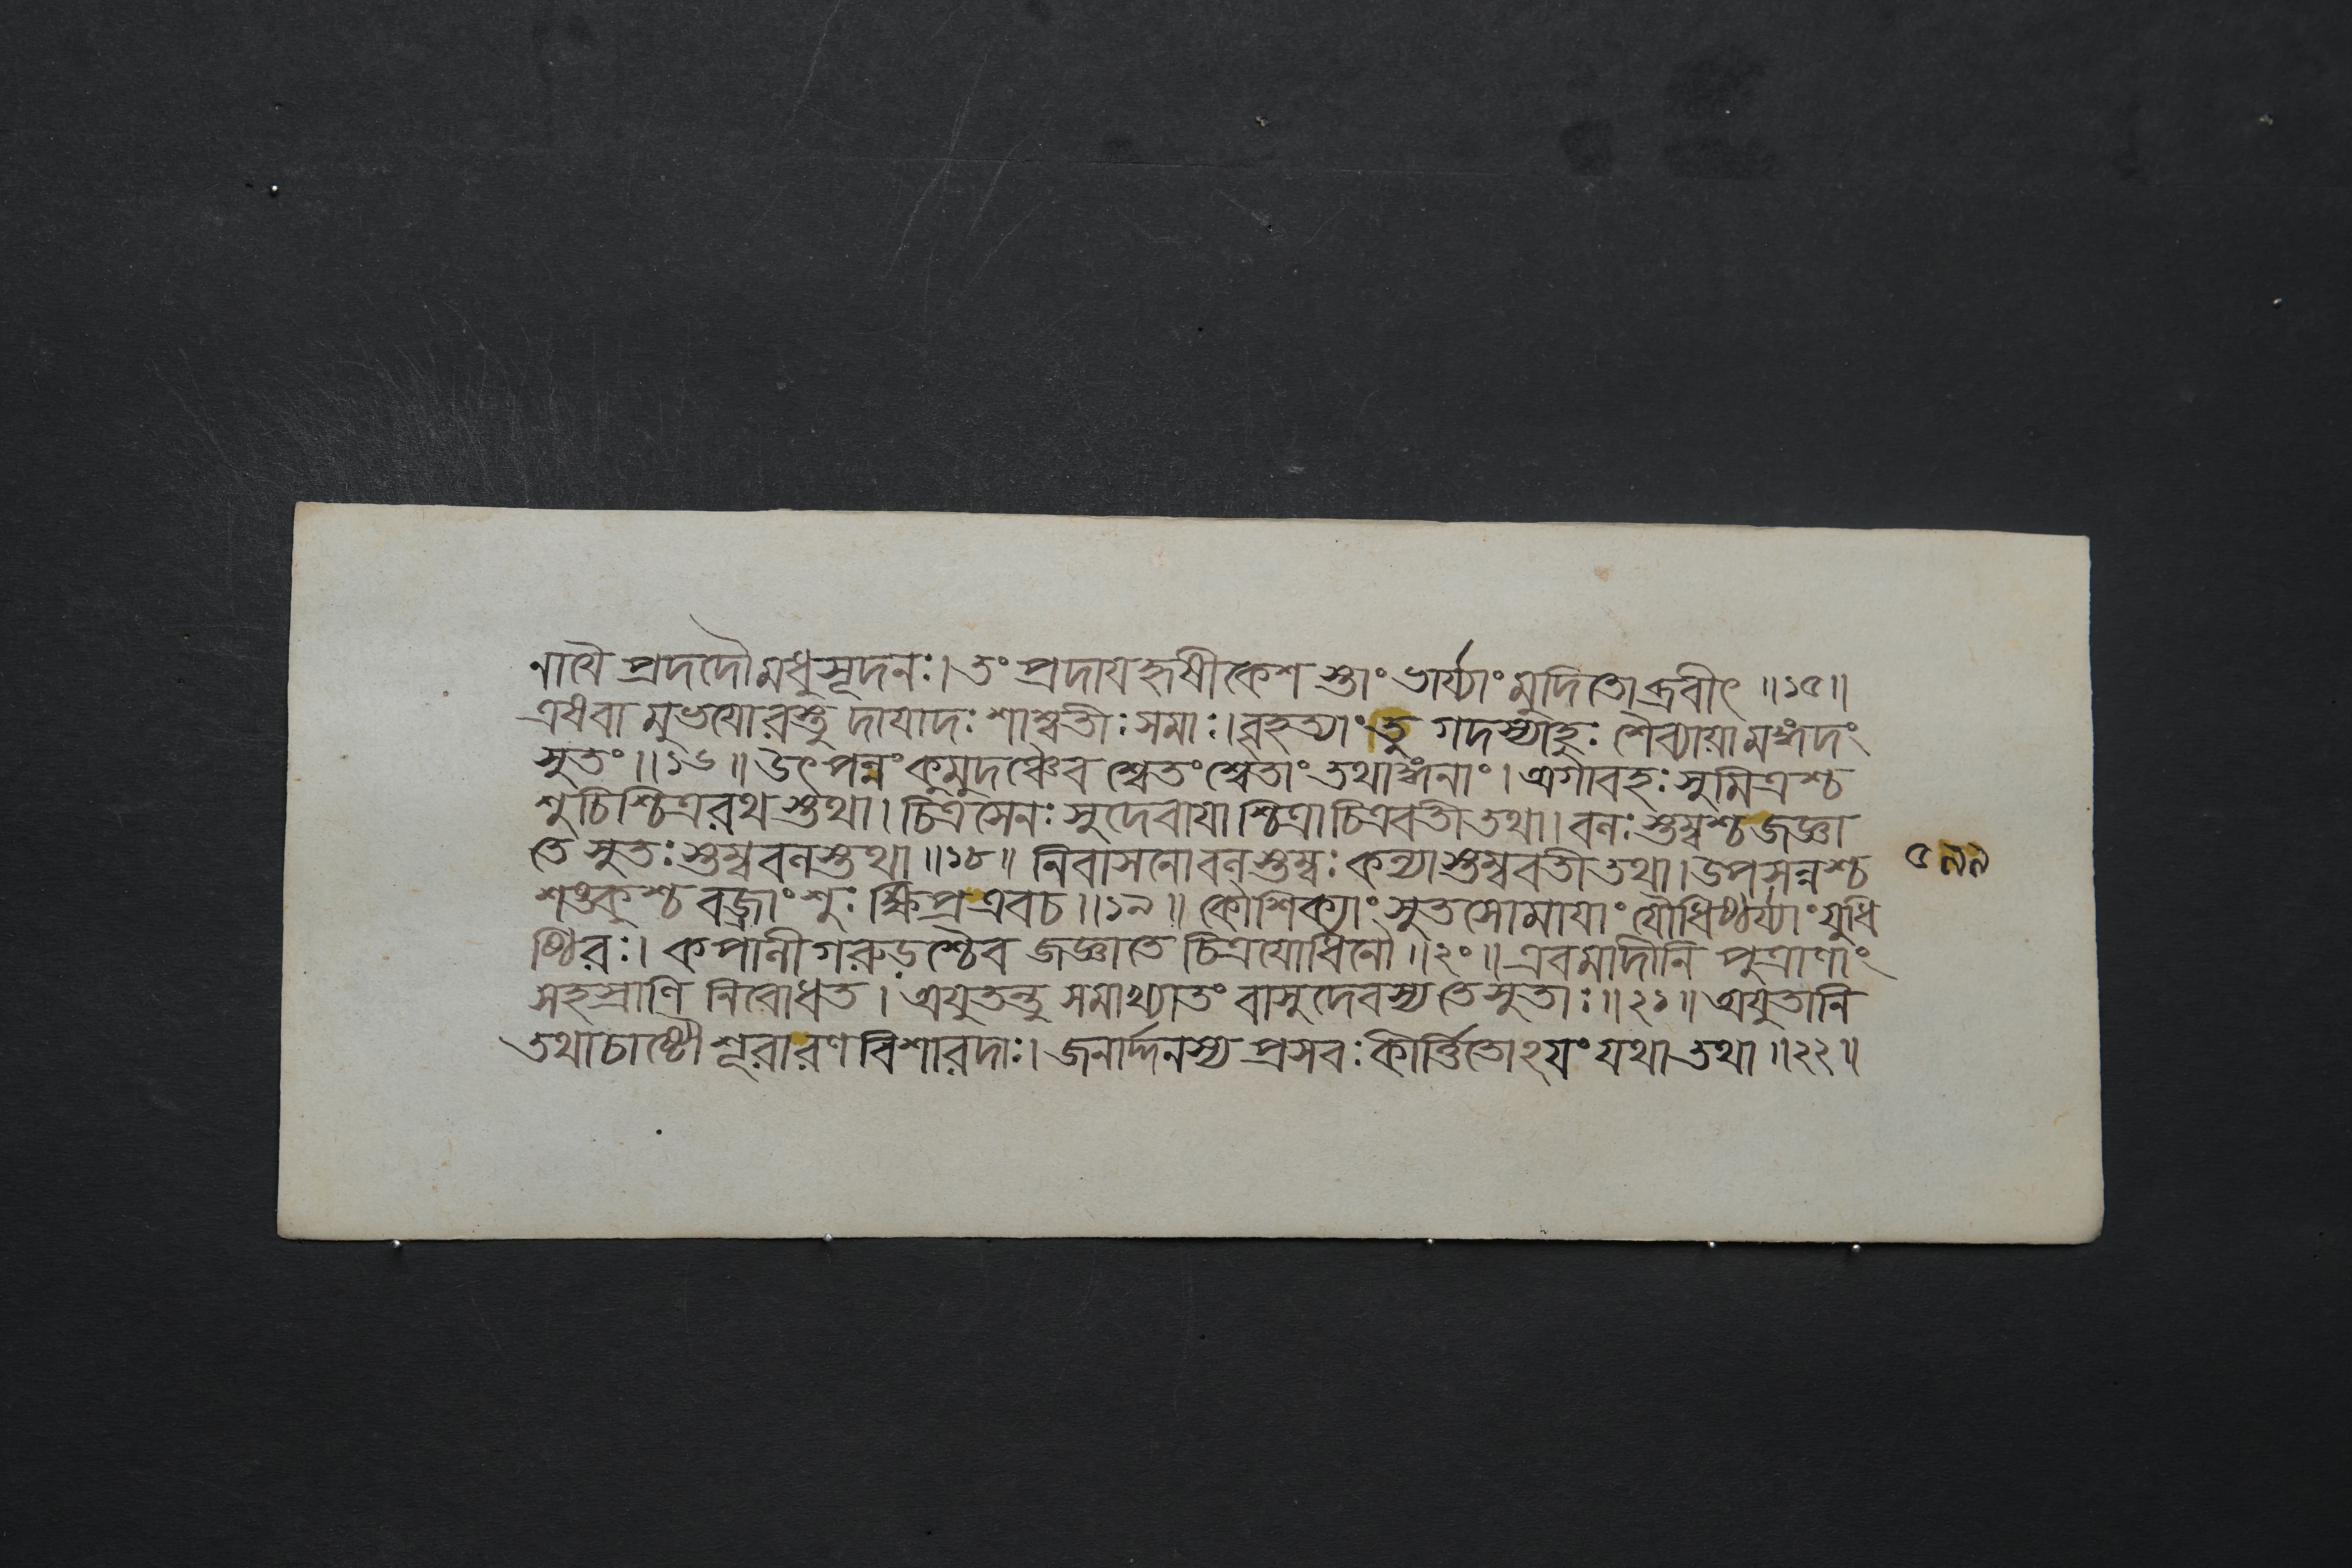 ণার্থৈ প্রদদৌ মধুসূদনঃ। তং প্রদায হৃষীকেশ স্তাং ভার্য্যাং মুদিতোব্রবীৎ ॥১৫॥
এষবা মুভযোরস্তু দাযাদঃ শাশ্বতীঃ সমাঃ। বৃহত্যাং তু গদস্যাহুঃ শৈব্যাযামঙ্গদং
সুতং॥১৬॥ উৎপন্নং কুমুদঞ্চৈব শ্বেতং শ্বেতাং তথাঙ্গনাং। অগাবহঃ সুমিত্রশ্চ
শুচিশ্চিত্ররথ স্তথা। চিত্রসেনঃ সুদেবাযা শ্চিত্রা চিত্রবতী তথা। বনঃ স্তম্বশ্চ জজ্ঞা
তে সুতঃ স্তম্ববনস্তথা॥১৮॥ নিবাসনোবনস্তম্বঃ কন্যা স্তম্ববতী তথা। উপসন্নশ্চ ৫৯৯
শঙ্কুশ্চ বজ্রাংশুঃ ক্ষিপ্র এবচ॥১৯॥ কৌশিক্যাং সুতসোমাযাং যৌধিষ্ঠির্য্যাং যুধি
ষ্ঠিরঃ। কপানী গরুড়শ্চৈব জজ্ঞাতে চিত্রযোধিনৌ॥২০॥ এবমাদীনি পুত্রাণাং
সহস্রাণি নিবোধত। অযুতন্তু সমাখ্যাতং বাসুদেবস্য তে সুতাঃ॥২১॥ অযুতানি
তথাচাষ্টৌ শূরারণ বিশারদাঃ। জনার্দ্দনস্য প্রসবঃ কীর্ত্তিতোঽযং যথা তথা॥২২॥